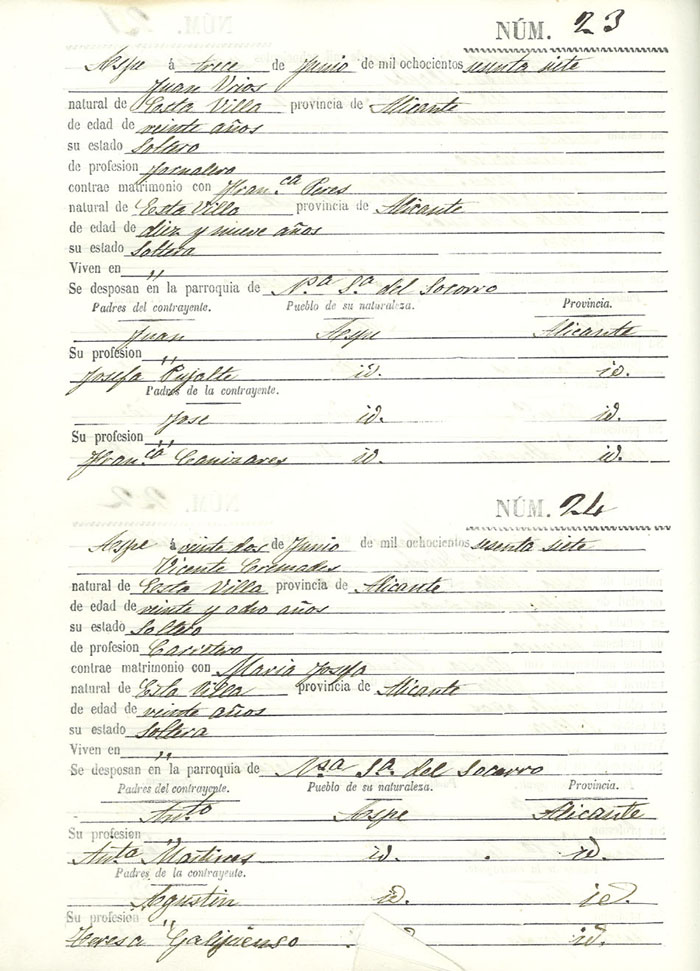 NÚM. 23
Aspe á trece de Junio de mil ochocientos sesenta siete
Juan Vrios
natural de Esta Villa provincia de Alicante
de edad de veinte años
su estado Soltero
de profesion Jornalero
contrae matrimonio con Fran.ca Peres
natural de Esta Villa provincia de Alicante
de edad de diez y nueve años
su estado Soltera
Viven en "
Se desposan en la parroquia de Nsa Sa del Socorro
Padres del contrayente. Pueblo de su naturaleza. Provincia.
Juan Aspe Alicante
Su profesion "
Josefa Pujalte id. id.
Padres de la contrayente.
Jose id. id.
Su profesion "
Fran.ca Canizares id. id.
NÚM. 24
Aspe á veinte dos de Junio de mil ochocientos sesenta siete
Vicente Cremades
natural de Esta Villa provincia de Alicante
de edad de veinte y ocho años
su estado Soltero
de profesion Carretero
contrae matrimonio con Maria Josefa
natural de Esta Villa provincia de Alicante
de edad de veinte años
su estado Soltera
Viven en "
Se desposan en la parroquia de Nsa Sa del Socorro
Padres del contrayente. Pueblo de su naturaleza. Provincia.
Ant.to Aspe Alicante
Su profesion "
Ant.a Martines id. id.
Padres de la contrayente.
Agustin id. id.
Su profesion "
Teresa Galipienso id.